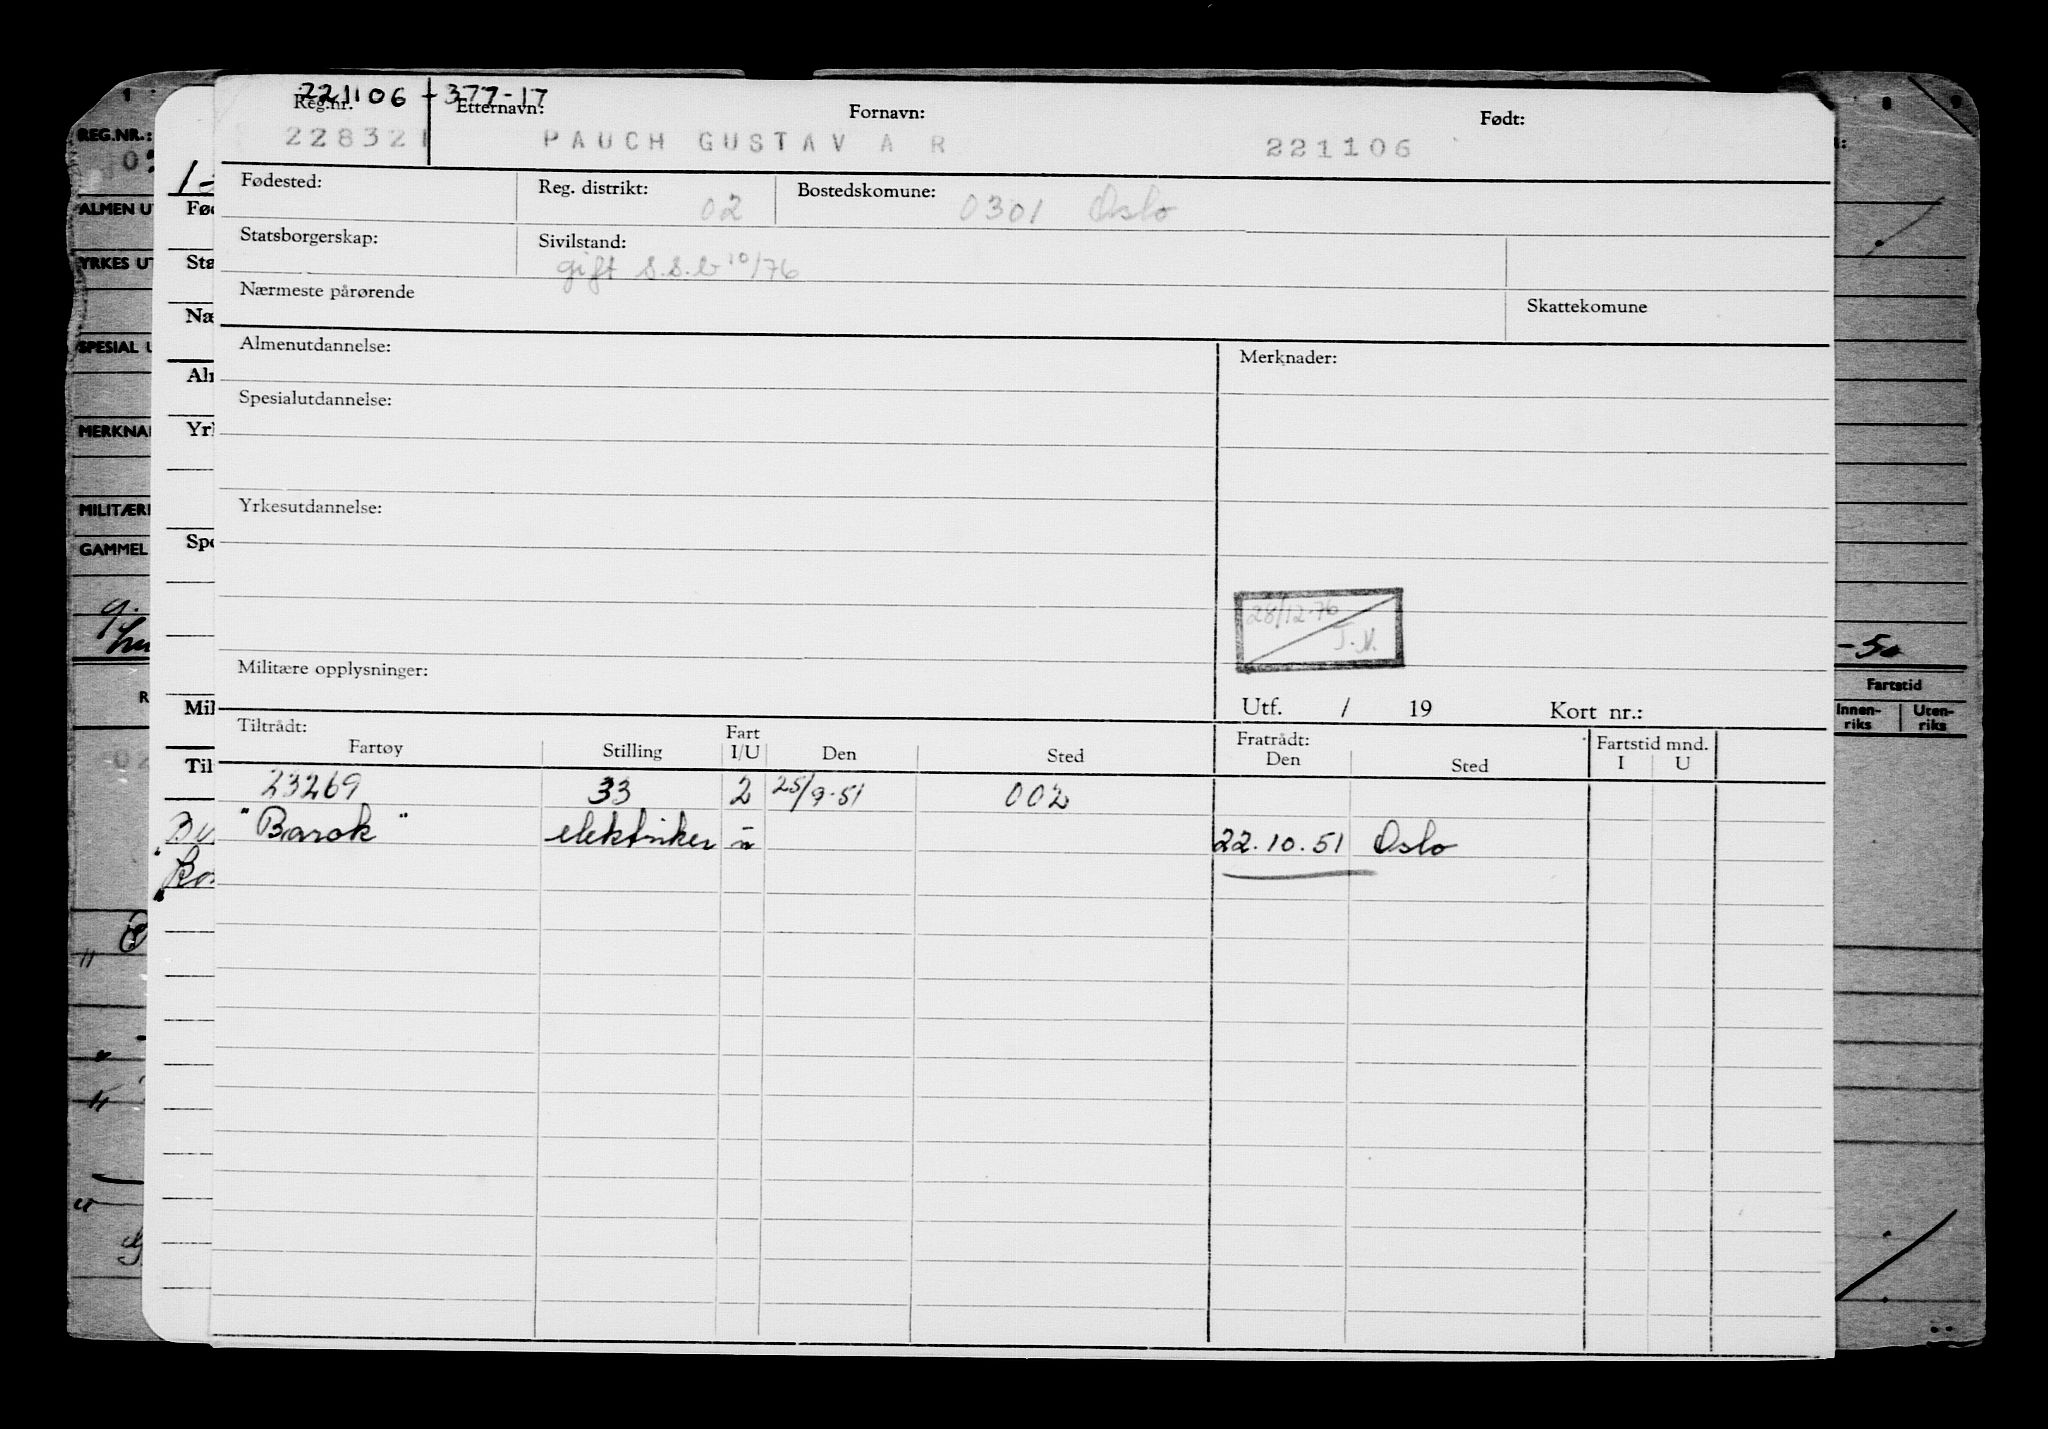 221106 - 377-17
Reg.nr. Etternavn: Fornavn: Født:
228321 PAUCH GUSTAV A R 221106
Fødested: Reg. distrikt: 02 Bostedskomune: 0301 Oslo
Statsborgerskap: Sivilstand: gift s.s.b 10/76
Nærmeste pårørende Skattekomune
Almenutdannelse: Merknader:
Spesialutdannelse:
Yrkesutdannelse:
28/12-76
Militære opplysninger:
Utf. / 19 Kort nr.:
Tiltrådt: Fart Fratrådt: Fartstid mnd.
Fartøy Stilling I/U Den Sted Den Sted I U
23269 33 2 25/9-51 002
"Barok" elektriker u 22.10.51 Oslo
REG.NR.:
ALMEN UT
YRKES UT
SPESIAL U
MERKNA
MILITÆR
GAMMEL
Fød
Sta
Næ
Aln
Yrk
Spe
Mil
Til
-50
Fartstid
Innen-riks Uten-riks